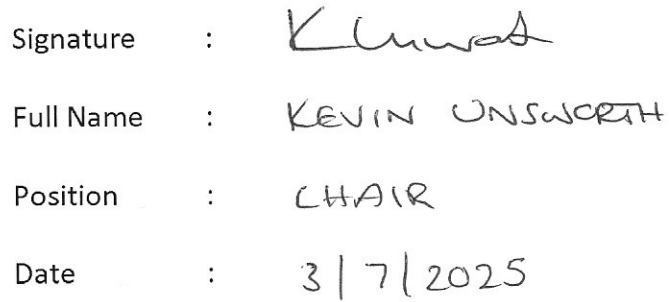 Signature :
Full Name : KEVIN UNSWORTH
Position : CHAIR
Date : 3/7/2025